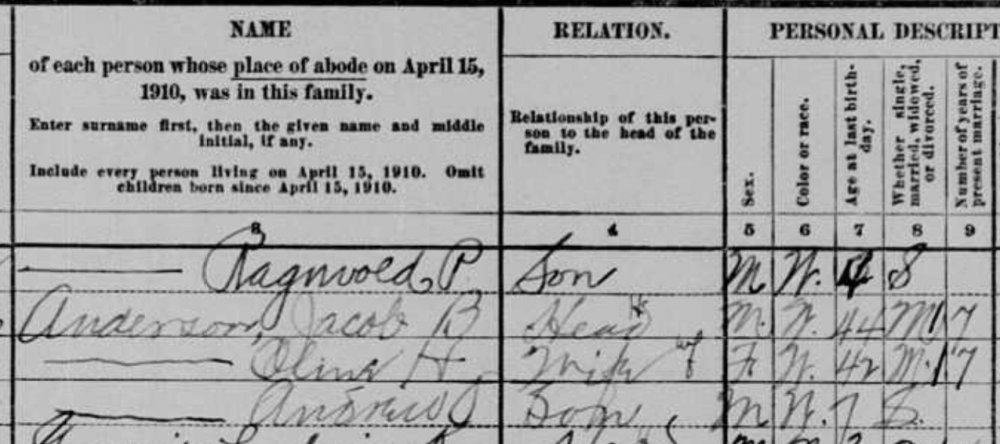 NAME
of each person whose place of abode on April 15,
1910, was in this family.
Enter surname first, then the given name and middle
initial, if any.
Include every person living on April 15, 1910. Omit
children born since April 15, 1910.
RELATION.
Relationship of this per-
son to the head of the
family.
PERSONAL DESCRIPT
Sex.
Color or race.
Age at last birth-
day.
Whether single,
married, widowed,
or divorced.
Number of years of
present marriage.
3 4 5 6 7 8 9
Ragnvold P Son M W. 4 S
Anderson, Jacob B Head M. W. 44 M1 7
H Wife F. W. 42 M.1 7
Andrew J Son M W. 7 S.